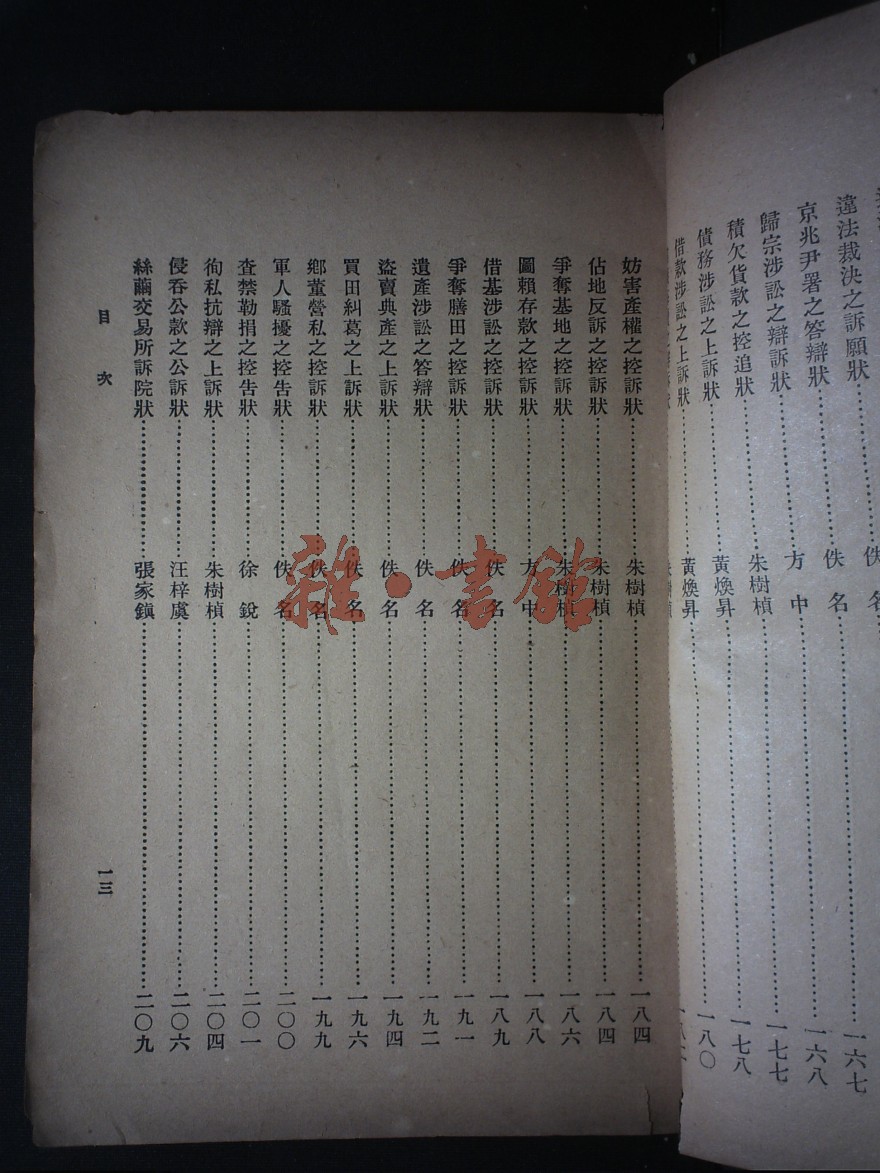 違法裁決之訴願狀 佚名 一六七
京兆尹署之答辯狀 佚名 一六八
歸宗涉訟之辯訴狀 方中 一七七
積欠貨款之控追狀 朱樹楨 一七八
債務涉訟之上訴狀 黃煥昇 一八〇
借款涉訟之上訴狀 黃煥昇
妨害產權之控訴狀 朱樹楨 一八四
佔地反訴之控訴狀 朱樹楨 一八四
爭奪基地之控訴狀 朱樹楨 一八六
圖賴存款之控訴狀 方中 一八八
借基涉訟之上訴狀 佚名 一八九
爭奪膳田之控訴狀 佚名 一九一
遺產涉訟之答辯狀 佚名 一九二
盜賣典產之上訴狀 佚名 一九四
買田糾葛之上訴狀 佚名 一九六
鄉董營私之控訴狀 佚名 一九九
軍人騷擾之控告狀 佚名 二〇〇
查禁勒捐之控告狀 徐銳 二〇一
徇私抗辯之上訴狀 朱樹楨 二〇四
侵吞公款之公訴狀 汪梓虞 二〇六
絲繭交易所訴院狀 張家鎭 二〇九
目次 一三
雜·書館